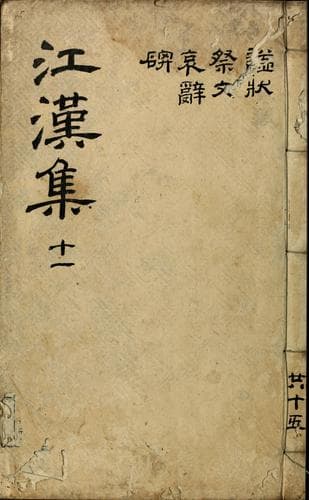 諡狀
祭文
哀辭
碑
江漢集 十一
共十五